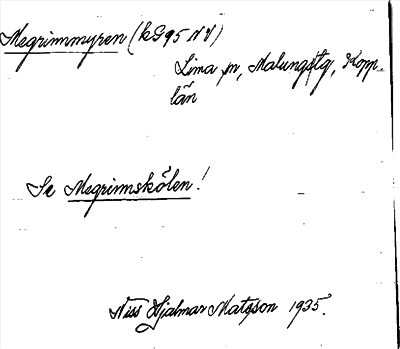 Megrimmyren (kG95NV)
Lima sn, Malungs tg, Kopp.
län
Se Megrimskölen!
Niss Hjalmar Matsson 1935.